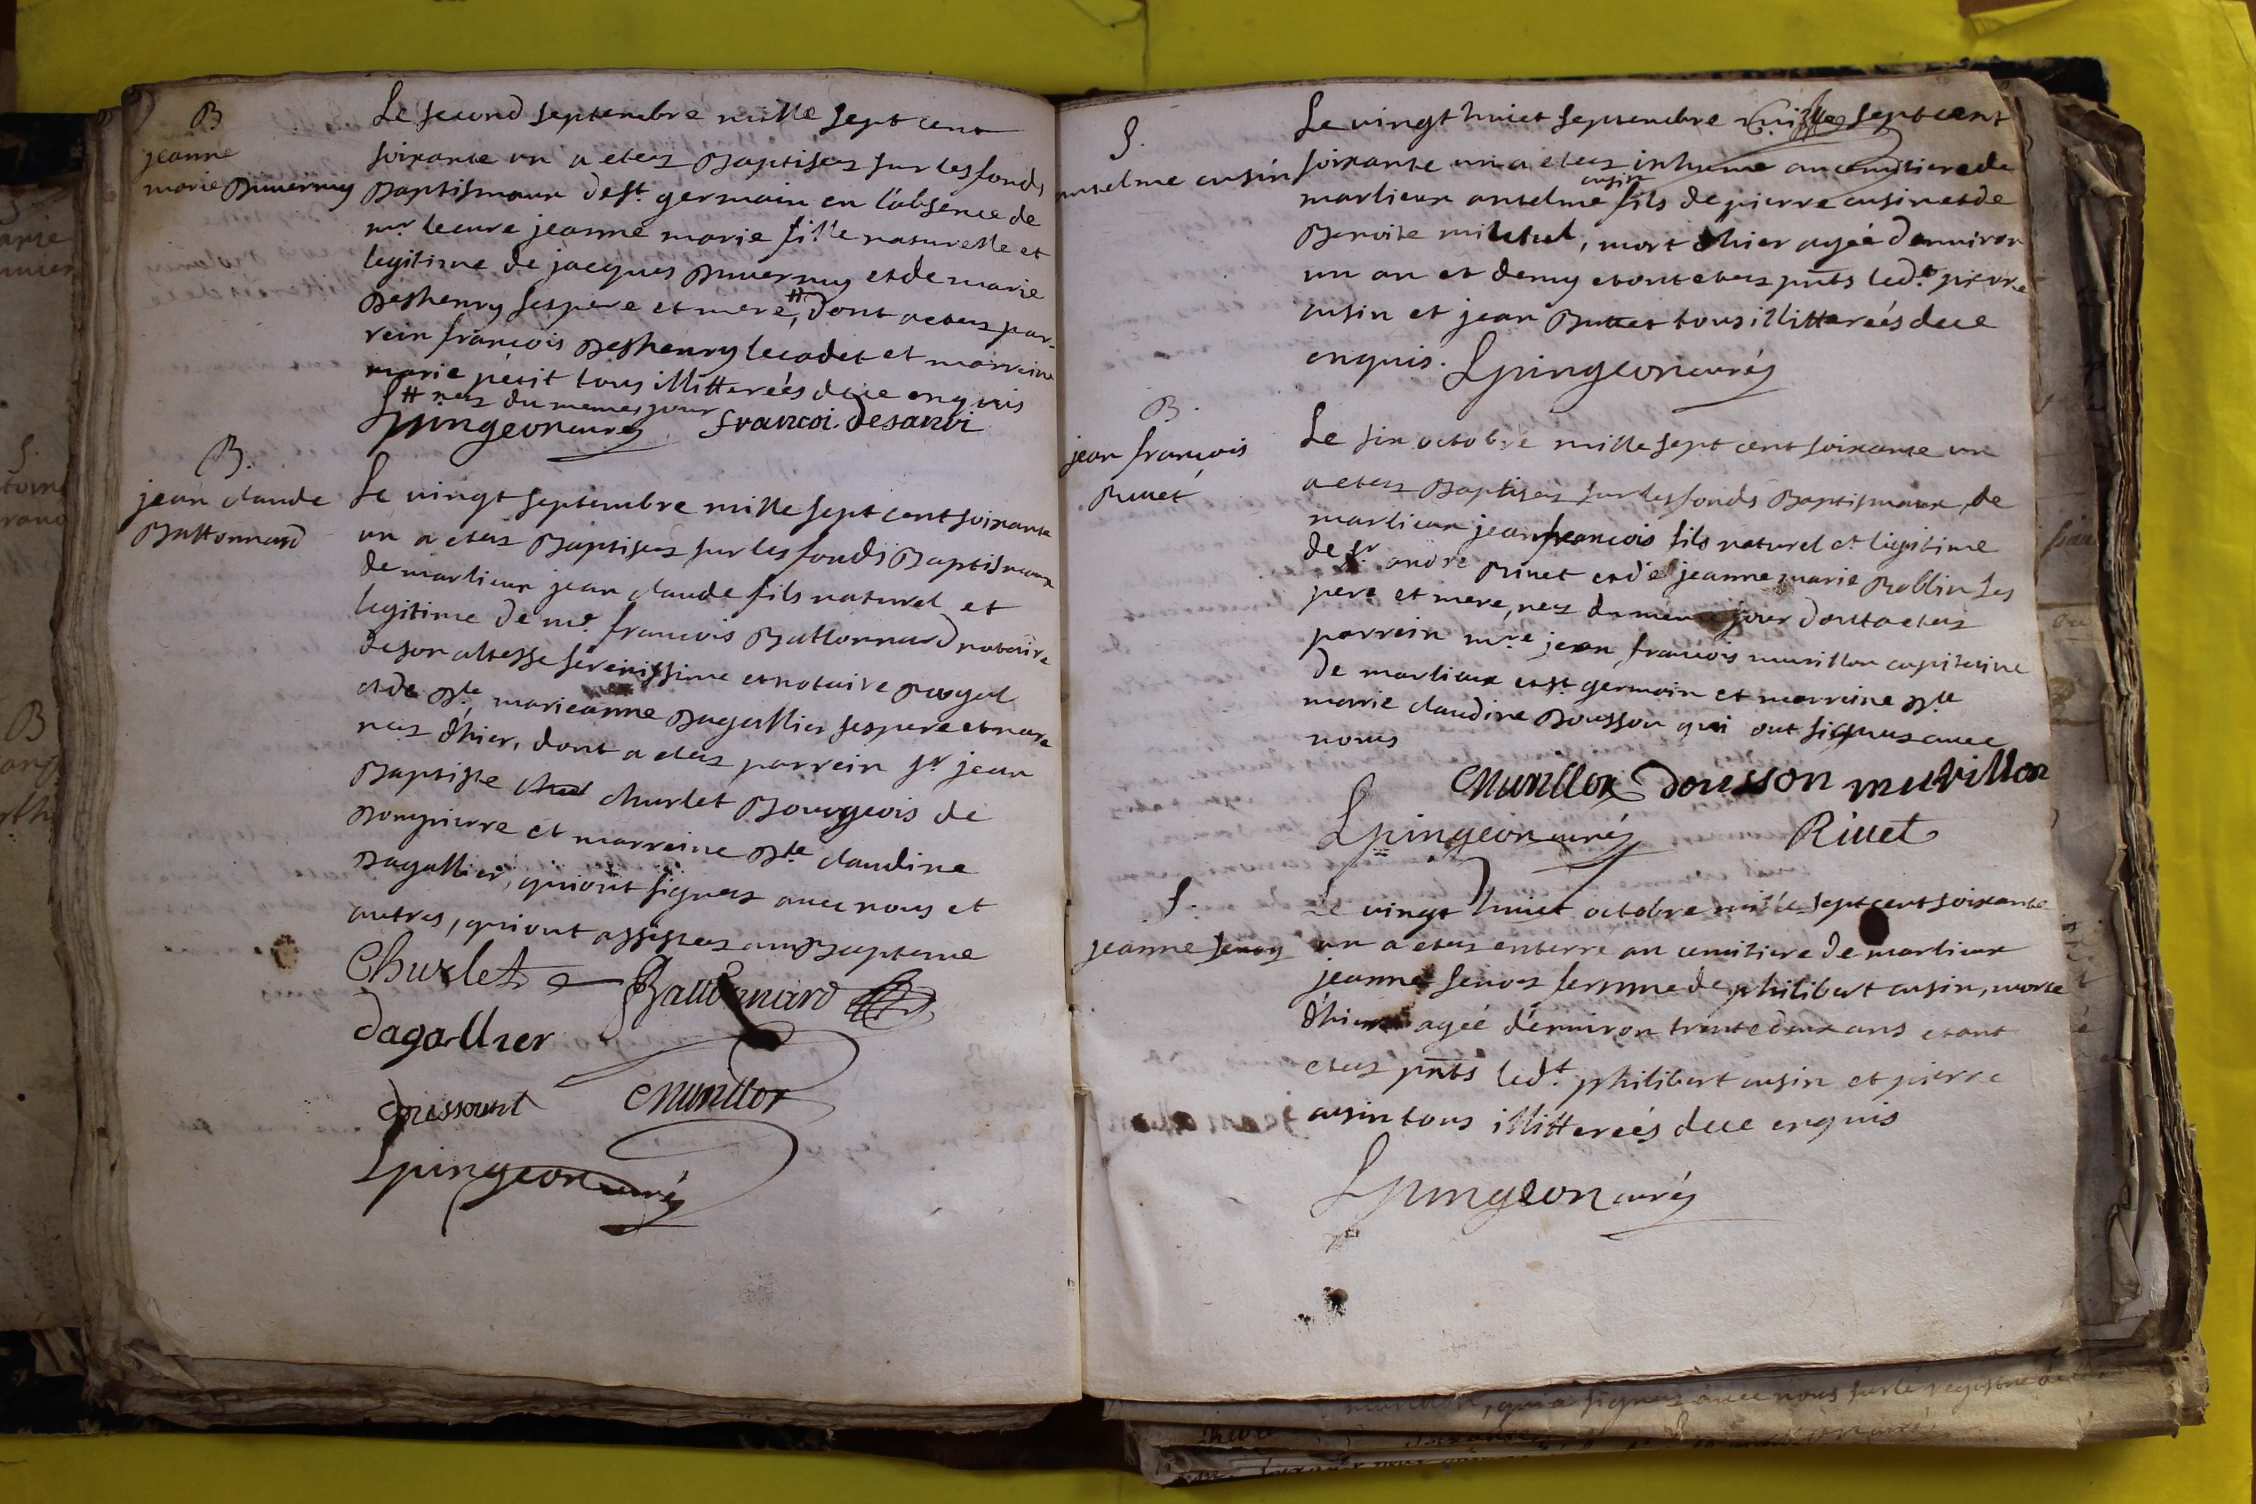 B
jeanne
marie Duvernuy
Le second septembre mille sept cent
soixante un a eteez Baptisez sur les fonds
Baptismaux de st germain en l'absence de
mr le curé jeanne marie fille naturelle et
legitime de jacques Duvernuy et de marie
Deshenry ses pere et mere, # dont a eteez par-
rein françois Deshenry le cadet et marreine
marie petit tous illitterés de ce enquis
# neez du meme jour
Lpingeon curéz françoi desanri
B.
jean claude
Battonnard
Le vingt septembre mille sept cent soixante
un a eteez Baptisez sur les fonds Baptismaux
de marlieux jean claude fils naturel et
legitime de me françois Battonnard notaire
de son altesse serenissime et notaire Royal
et de Dlle marieanne Dagallier ses pere et mere
neez d'hier, dont a eteez parrein sr jean
Baptiste churlet Bourgeois de
Dompierre et marreine Dlle claudine
Dagallier, qui ont signeez avec nous et
autres, qui ont assisteez au Bapteme
Churlet Battonnard
dagallier
Munillor
Lpingeon curéz
S.
anselme cusin
Le vingt huict septembre mille sept cent
soixante un a eteez inhume au cemitiere de
cusin
marlieux anselme fils de pierre cusin et de
Benoite , mort d'hier agée d'environ
un an et demy et ont eteez pnts led.t pierre
cusin et jean Buttet tous illitterés de ce
enquis. Lpingeon curéz
B.
jean françois
Rivet
Le six octobre mille sept cent soixante un
a eteez Baptisez sur les fonds Baptismaux de
marlieux jean françois fils naturel et legitime
de sr andré Rivet et de jeanne marie Roblin ses
pere et mere, neez du meme jour dont a eteez
parrein mre jean françois munillor capitaine
de marlieux et st germain et marreine Dlle
marie claudine Dousson qui ont signeez avec
nous
Munillor Dousson munillor
Lpingeon curéz Rivet
S.
jeanne
Le vingt huict octobre mille sept cent soixante
un a eteez enterre au cemitiere de marlieux
jeanne femme de philibert cusin, morte
d'hier agée d'environ trente deux ans et ont
eteez pnts led.t philibert cusin et pierre
cusin tous illitterés de ce enquis
Lpingeon curéz